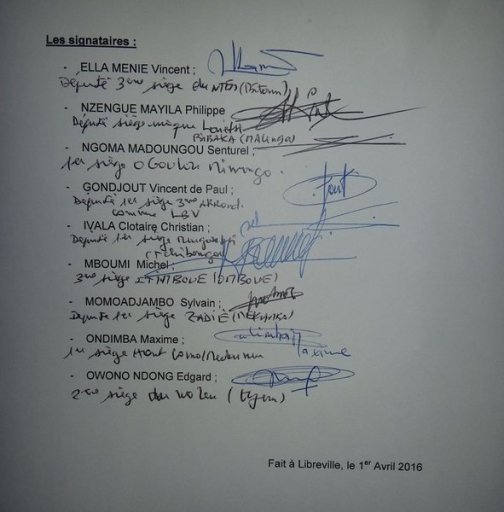 Les signataires :
- ELLA MENIE Vincent ;
Député 3ème siège du NTEM (Bitam)
- NZENGUE MAYILA Philippe
Député siège unique
- NGOMA MADOUNGOU Senturel ;
1er siège Ogoulou Mimongo.
- GONDJOUT Vincent de Paul ;
Député 1er siège 3ème Arrond.
commune LBV
- IVALA Clotaire Christian ;
Député 1er siège
(Tchibanga)
- MBOUMI Michel ;
3ème siège ETIMBOUE (OMBOUE)
- MOMOADJAMBO Sylvain ;
Député 1er siège ZADIÉ
- ONDIMBA Maxime ;
1er siège Haut Como
Maxime
- OWONO NDONG Edgard ;
2ème siège du Woleu (Oyem)
Fait à Libreville, le 1er Avril 2016